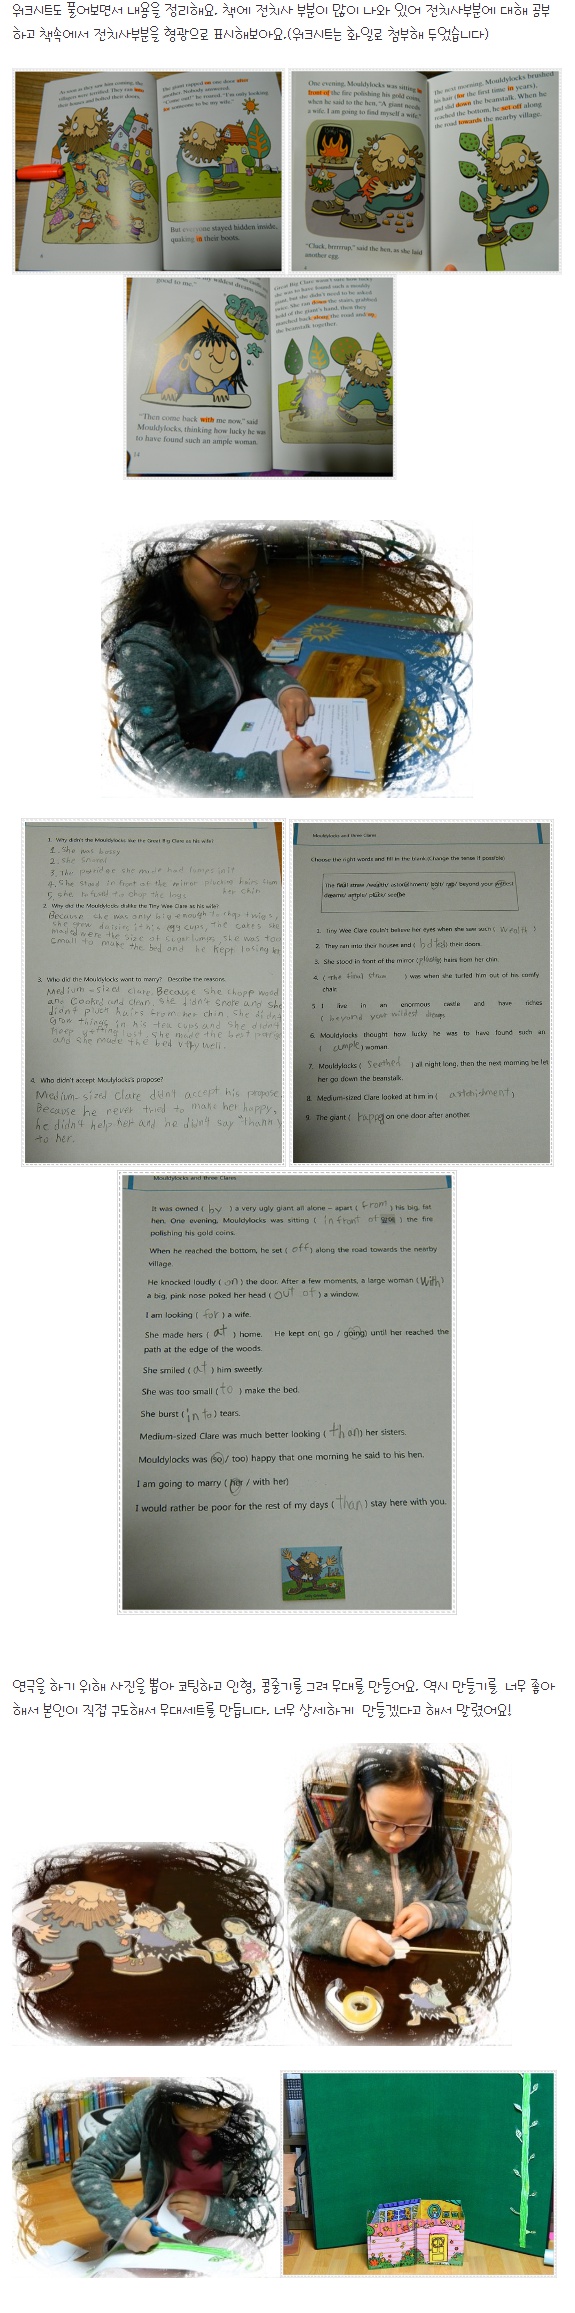 워크시트도 풀어보면서 내용을 정리해요. 책에 전치사 부분이 많이 나와 있어 전치사부분에 대해 공부
하고 책속에서 전치사부분을 형광으로 표시해보아요.(워크시트는 화일로 첨부해 두었습니다)
As soon as they saw him coming, the
villagers were terrified. They ran into
their houses and bolted their doors.
The giant rapped on one door after
another. Nobody answered.
"Come out!" he roared. "I'm only looking
for someone to be my wife."
But everyone stayed hidden inside,
quaking in their boots.
One evening, Mouldylocks was sitting in
front of the fire polishing his gold coins,
when he said to the hen, "A giant needs
a wife. I am going to find myself a wife."
"Cluck, brrrrup," said the hen, as she laid
another egg.
The next morning, Mouldylocks brushed
his hair (for the first time in years),
and slid down the beanstalk. When he
reached the bottom, he set off along
the road towards the nearby village.
good to me."
my wildest dreams
"Then come back with me now," said
Mouldylocks, thinking how lucky he was
to have found such an ample woman.
14
Great Big Clare wasn't sure how lucky
she was to have found such a mouldy
giant, but she didn't need to be asked
twice. She ran down the stairs, grabbed
hold of the giant's hand, then they
marched back along the road and up
the beanstalk together.
1. Why didn't the Mouldylocks like the Great Big Clare as his wife?
1. She was bossy
2. She snored
3. The porridge she made had lumps in it
4. She stood in front of the mirror plucking hairs from
her chin
5. she refused to chop the logs
2. Why did the Mouldylocks dislike the Tiny Wee Clare as his wife?
Because she was only big enough to chop twigs,
she grew daisies in his egg cups, the cakes she
made were the size of sugar lumps, she was too
small to make the bed and he kept losing her
3. Who did the Mouldylocks want to marry? Describe the reasons.
Medium-sized clare. Because she chopped wood
and cooked and clean. She didn't snore and she
didn't pluck hairs from her chin, she didn't
Grow things in his tea cups and She didn't
keep getting lost. She made the best porridge
and she made the bed very well.
4. Who didn't accept Moulylocks's propose?
Medium-sized Clare didn't accept his propose
Because he never tried to make her happy,
he didn't help her and he didn't say "Thank y
to her.
Mouldylocks and three Clares
Choose the right words and fill in the blank.(Change the tense if possible)
The final straw /wealth/ astonishment/ bolt/ rap/ beyond your wildest
dreams/ ample/ pluck/ seethe
1. Tiny Wee Clare couldn't believe her eyes when she saw such ( wealth )
2. They ran into their houses and ( bolted ) their doors.
3. She stood in front of the mirror (plucking) hairs from her chin.
4. ( the final straw ) was when she turfed him out of his comfy
chair.
5. I live in an enormous castle and have riches
( beyond your wildest dreams
6. Mouldylocks thought how lucky he was to have found such an
( ample ) woman.
7. Mouldylocks ( Seethed ) all night long, then the next morning he let
her go down the beanstalk.
8. Medium-sized Clare looked at him in ( astonishment )
9. The giant ( rapped on one door after another.
Mouldylocks and three Clares
It was owned ( by ) a very ugly giant all alone – apart ( from ) his big, fat
hen. One evening, Mouldylocks was sitting ( in front of 앞에 ) the fire
polishing his gold coins.
When he reached the bottom, he set ( off ) along the road towards the nearby
village.
He knocked loudly ( on ) the door. After a few moments, a large woman ( with )
a big, pink nose poked her head ( out of ) a window.
I am looking ( for ) a wife.
She made hers ( at ) home. He kept on( go / going) until her reached the
path at the edge of the woods.
She smiled ( at ) him sweetly.
She was too small ( to ) make the bed.
She burst ( into ) tears.
Medium-sized Clare was much better looking ( than ) her sisters.
Mouldylocks was (so / too) happy that one morning he said to his hen.
I am going to marry ( her / with her)
I would rather be poor for the rest of my days ( than ) stay here with you.
연극을 하기 위해 사진을 뽑아 코팅하고 인형, 콩줄기를 그려 무대를 만들어요. 역시 만들기를 너무 좋아
해서 본인이 직접 구도해서 무대세트를 만듭니다. 너무 상세하게 만들겠다고 해서 말렸어요!